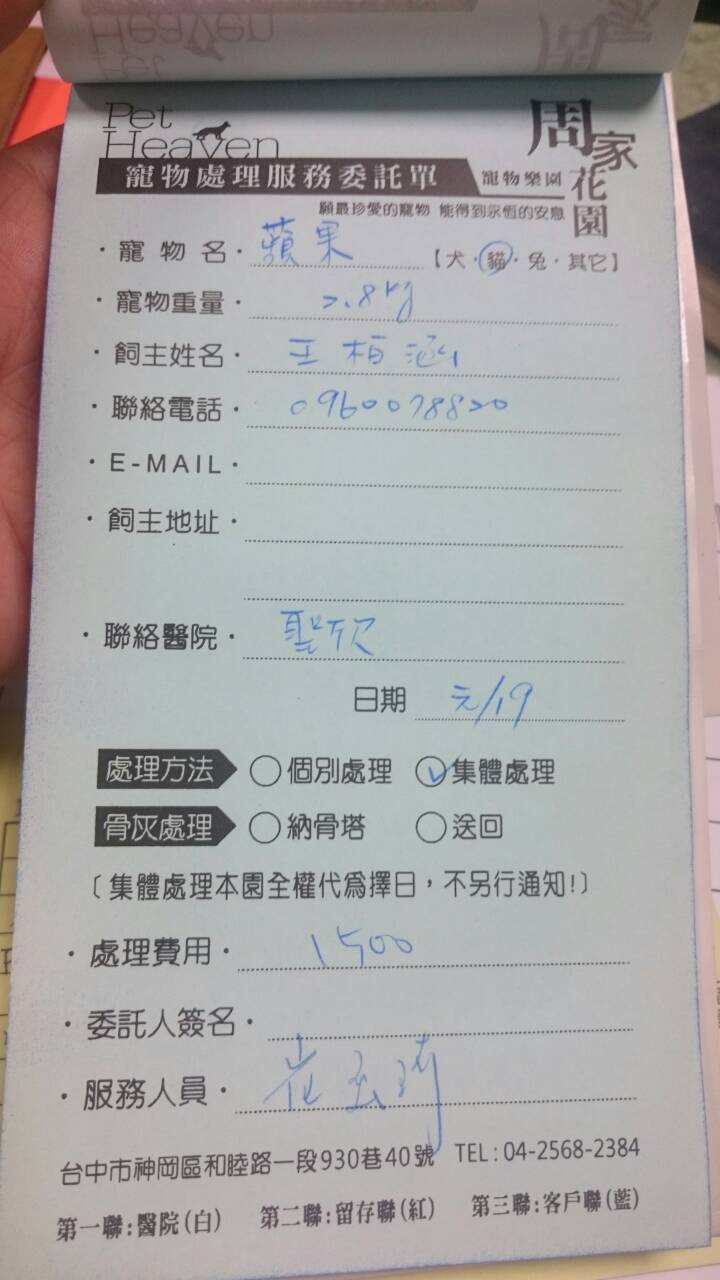 Pet
Heaven
周家花園
寵物處理服務委託單 寵物樂園
願最珍愛的寵物 能得到永恆的安息
・寵物名・蘋果【犬・貓・兔・其它】
・寵物重量・2.8kg
・飼主姓名・王柏涵
・聯絡電話・0960078820
・E-MAIL・
・飼主地址・
・聯絡醫院・聖欣
日期 元/19
處理方法 ○個別處理 ✓集體處理
骨灰處理 ○納骨塔 ○送回
〔集體處理本園全權代為擇日，不另行通知!〕
・處理費用・1500
・委託人簽名・
・服務人員・
台中市神岡區和睦路一段930巷40號 TEL:04-2568-2384
第一聯:醫院(白) 第二聯:留存聯(紅) 第三聯:客戶聯(藍)